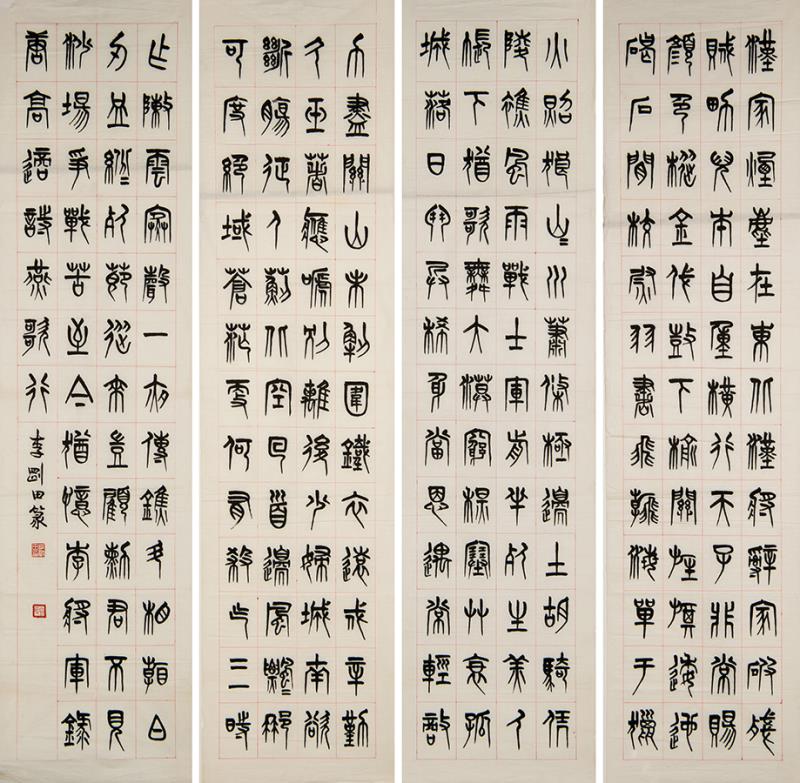 漢家煙塵在東北漢將辭家破殘
賊男兒本自重橫行天子非常賜
顏色摐金伐鼓下榆關旌旆逶迤
碣石間校尉羽書飛瀚海單于獵
火照狼山〻川蕭條極邊土胡騎憑
陵雜風雨戰士軍前半死生美人
帳下猶歌舞大漠窮秋塞艸衰孤
城落日鬥兵稀身當恩遇常輕敵
力盡關山未解圍鐵衣遠戍辛勤
久玉箸應啼別離後少婦城南欲
斷腸征人薊北空回首邊風飄〻那
可度絕域蒼茫更何有殺氣三時
作陣雲寒聲一夜傳鐎斗相看白
刃血紛〻死節從來豈顧勳君不見
沙場爭戰苦至今猶憶李將軍錄
唐高適詩燕歌行 李剛田篆